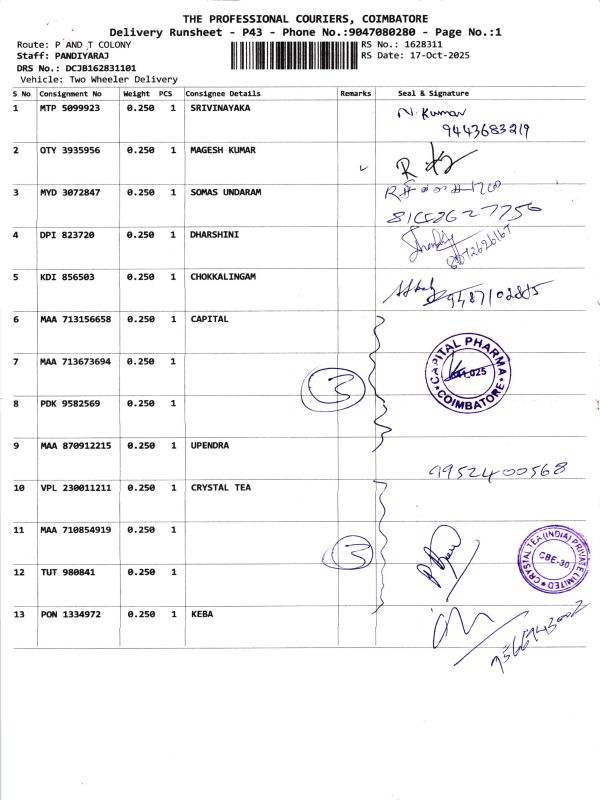 THE PROFESSIONAL COURIERS, COIMBATORE
Delivery Runsheet - P43 - Phone No.:9047080280 - Page No.:1
Route: P AND T COLONY
RS No.: 1628311
Staff: PANDIYARAJ
RS Date: 17-Oct-2025
DRS No.: DCJB162831101
Vehicle: Two Wheeler Delivery
S No Consignment No Weight PCS Consignee Details Remarks Seal & Signature
1 MTP 5099923 0.250 1 SRIVINAYAKA N. Kumar
9443683219
2 OTY 3935956 0.250 1 MAGESH KUMAR
3 MYD 3072847 0.250 1 SOMAS UNDARAM
4 DPI 823720 0.250 1 DHARSHINI
5 KDI 856503 0.250 1 CHOKKALINGAM
6 MAA 713156658 0.250 1 CAPITAL
7 MAA 713673694 0.250 1
3
CAPITAL PHARMA
COIMBATORE
8 PDK 9582569 0.250 1
9 MAA 870912215 0.250 1 UPENDRA
9952400568
10 VPL 230011211 0.250 1 CRYSTAL TEA
11 MAA 710854919 0.250 1
3
CRYSTAL TEA (INDIA) PRIVATE LIMITED
CBE-30
12 TUT 980841 0.250 1
13 PON 1334972 0.250 1 KEBA